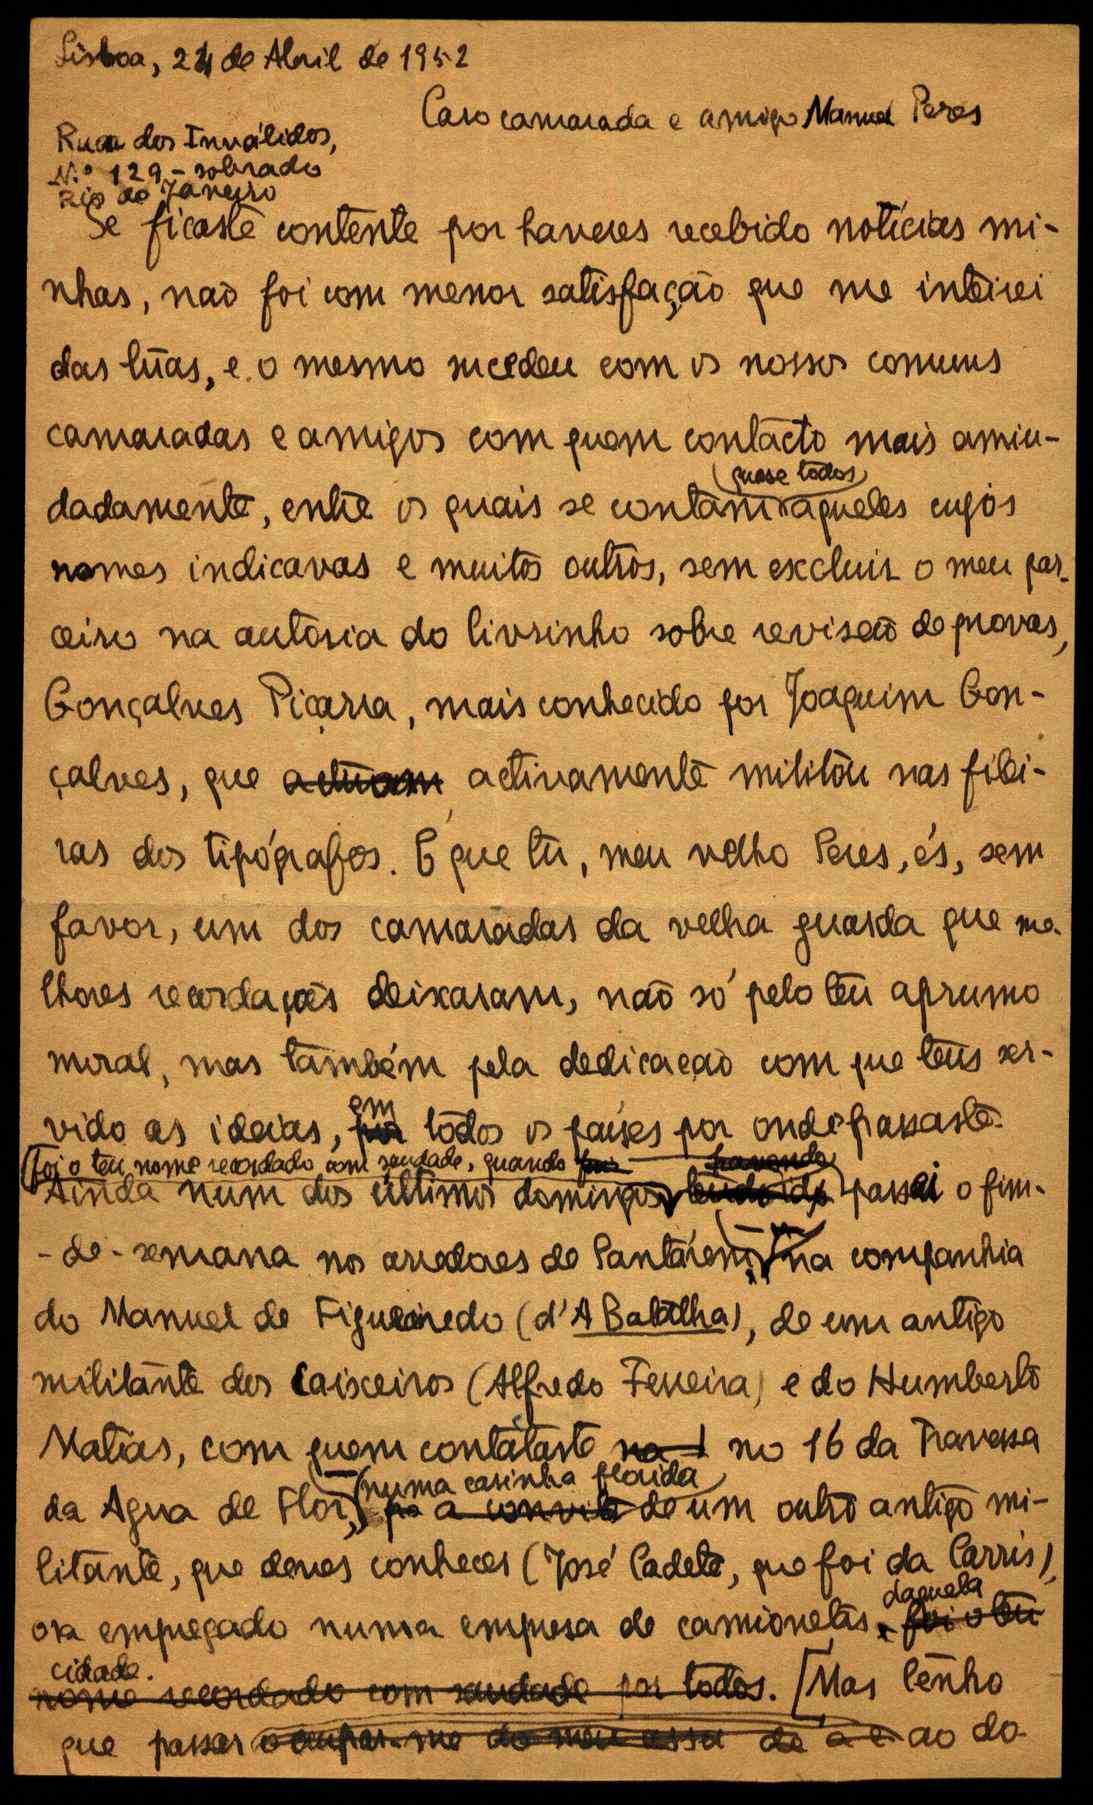 Lisboa, 24 de Abril de 1952
Caro camarada e amigo Manuel Peres
Rua dos Inválidos,
N.º 129 - sobrado
Rio de Janeiro
Se ficaste contente por haveres recebido notícias mi-
nhas, não foi com menor satisfação que me inteirei
das tuas, e o mesmo sucedeu com os nossos comuns
camaradas e amigos com quem contacto mais amiu-
quase todos
dadamente, entre os quais se contam aqueles cujos
nomes indicavas e muitos outros, sem excluir o meu par-
ceiro na autoria do livrinho sobre revisão de provas,
Gonçalves Piçarra, mais conhecido por Joaquim Gon-
çalves, que actuam activamente militou nas filei-
ras dos tipógrafos. É que tu, meu velho Peres, és, sem
favor, um dos camaradas da velha guarda que me-
lhores recordações deixaram, não só pelo teu aprumo
moral, mas também pela dedicação com que tens ser-
em
vido as ideias, por todos os países por onde passaste.
foi o teu nome recordado com saudade, quando
havendo
Ainda num dos últimos domingos, tendo ido passei o fim-
-de-semana nos arredores de Santarém, na companhia
do Manuel de Figueiredo (d'A Batalha), de um antigo
militante dos Caixeiros (Alfredo Ferreira) e do Humberto
Matias, com quem contataste na no 16 da Travessa
numa casinha florida
da Agua de Flor, a convite de um outro antigo mi-
litante, que deves conhecer (José Cadete, que foi da Carris),
daquela
ora empregado numa empresa de camionetas, foi o teu
cidade.
nome recordado com saudade por todos. [Mas tenho
que passar ocupar-me do meu ao do